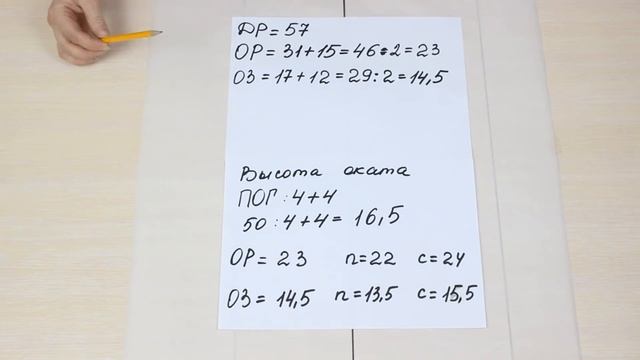 ДР = 57
ОР = 31+15 = 46:2 = 23
ОЗ = 17+12 = 29:2 = 14,5
Высота оката
ПОГ : 4+4
50 : 4+4 = 16,5
ОР = 23 п=22 с=24
ОЗ = 14,5 п=13,5 с=15,5